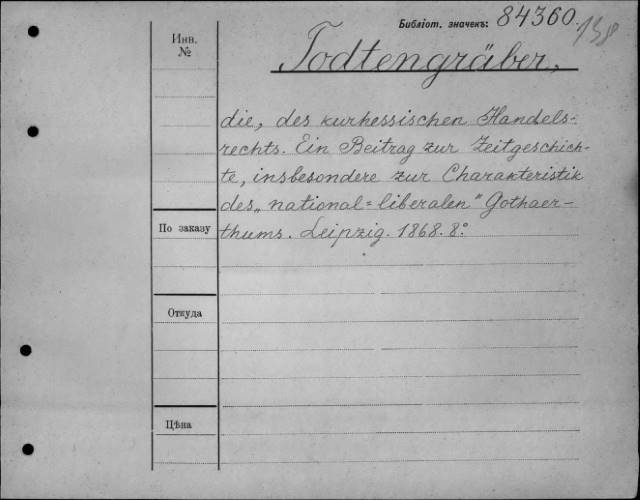 Библіот. значекъ: 84360.
138
Инв.
№
Todtengräber,
die, des kurhessischen Handels-
rechts. Ein Beitrag zur Zeitgeschich-
te, insbesondere zur Charakteristik
des „national=liberalen" Gothaer-
По заказу
thums. Leipzig. 1868. 8.°
Откуда
Цѣна